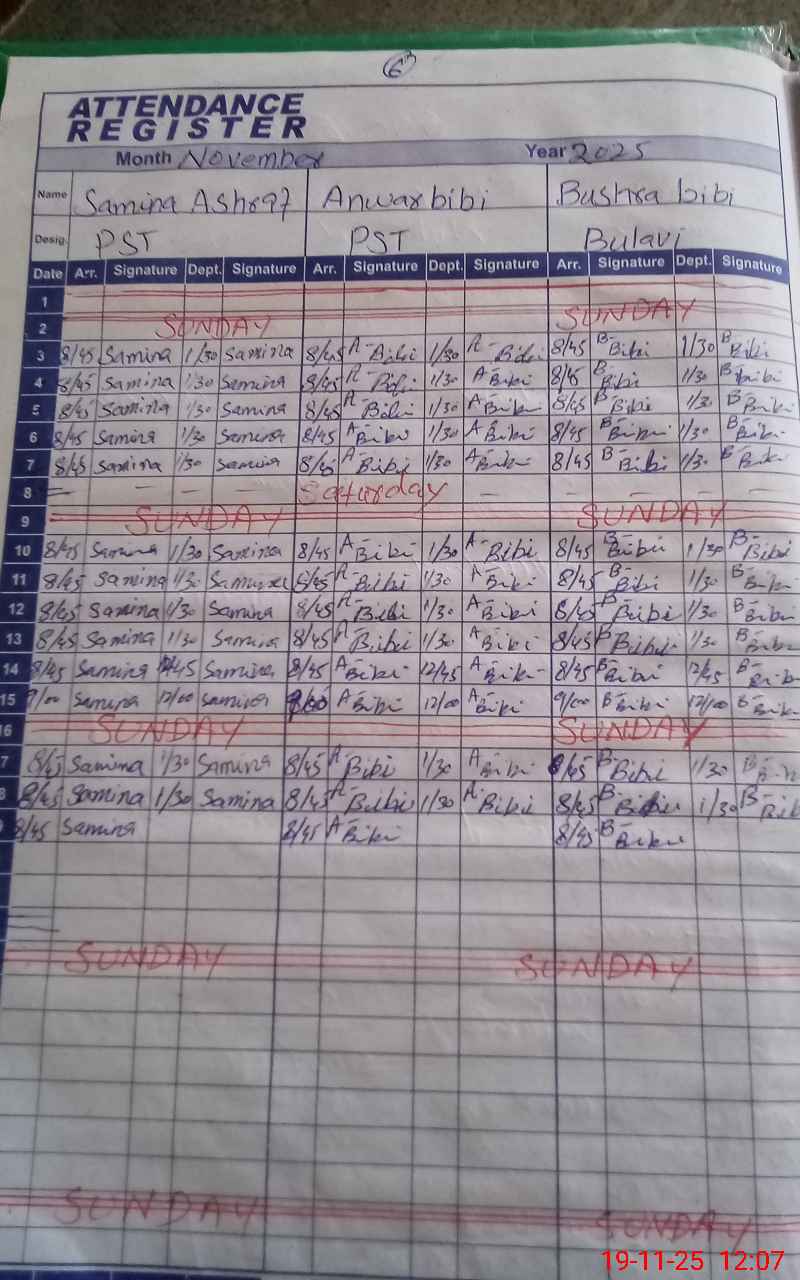 6
ATTENDANCE
REGISTER
Month November Year 2025
Name Samina Ashraf Anwar bibi Bushra bibi
Desig. PST PST Bulavi
Date Arr. Signature Dept. Signature Arr. Signature Dept. Signature Arr. Signature Dept. Signature
1
2 SUNDAY SUNDAY
3 8/45 Samina 1/30 Samina 8/45 A-Bibi 1/30 A-Bibi 8/45 B-Bibi 1/30 B-Bibi
4 8/45 Samina 1/30 Samina 8/45 A-Bibi 1/30 A-Bibi 8/45 B-Bibi 1/30 B-Bibi
5 8/45 Samina 1/30 Samina 8/45 A-Bibi 1/30 A-Bibi 8/45 B-Bibi 1/30 B-Bibi
6 8/45 Samina 1/30 Samina 8/45 A-Bibi 1/30 A-Bibi 8/45 B-Bibi 1/30 B-Bibi
7 8/45 Samina 1/30 Samina 8/45 A-Bibi 1/30 A-Bibi 8/45 B-Bibi 1/30 B-Bibi
8 — — — — Saturday — — — — —
9 SUNDAY SUNDAY
10 8/45 Samina 1/30 Samina 8/45 A-Bibi 1/30 A-Bibi 8/45 B-Bibi 1/30 B-Bibi
11 8/45 Samina 1/30 Samina 8/45 A-Bibi 1/30 A-Bibi 8/45 B-Bibi 1/30 B-Bibi
12 8/45 Samina 1/30 Samina 8/45 A-Bibi 1/30 A-Bibi 8/45 B-Bibi 1/30 B-Bibi
13 8/45 Samina 1/30 Samina 8/45 A-Bibi 1/30 A-Bibi 8/45 B-Bibi 1/30 B-Bibi
14 8/45 Samina 12/45 Samina 8/45 A-Bibi 12/45 A-Bibi 8/45 B-Bibi 12/45 B-Bibi
15 9/00 Samina 12/00 Samina 9/00 A-Bibi 12/00 A-Bibi 9/00 B-Bibi 12/00 B-Bibi
16 SUNDAY SUNDAY
7 8/45 Samina 1/30 Samina 8/45 A-Bibi 1/30 A-Bibi 8/45 B-Bibi 1/30 B-Bibi
8 8/45 Samina 1/30 Samina 8/45 A-Bibi 1/30 A-Bibi 8/45 B-Bibi 1/30 B-Bibi
9 8/45 Samina 8/45 A-Bibi 8/45 B-Bibi
SUNDAY SUNDAY
SUNDAY SUNDAY
19-11-25 12:07